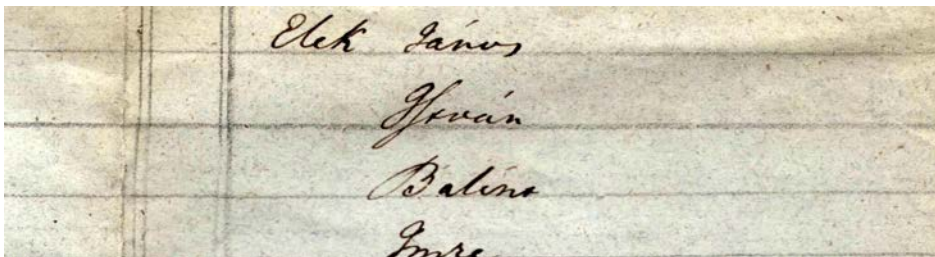 Elek János
István
Bálint
Imre